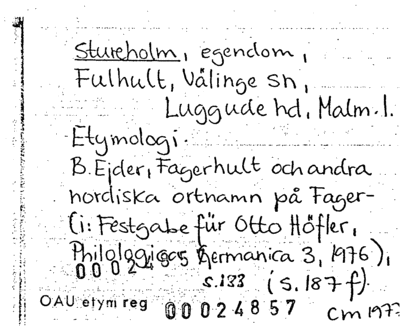 Stureholm, egendom,
Fulhult, Välinge sn,
Luggude hd, Malm. l.
Etymologi.
B. Ejder, Fagerhult och andra
nordiska ortnamn på Fager-
(i: Festgabe für Otto Höfler,
Philologica Germanica 3, 1976),
00024857
s. 183 (s. 187 f).
OAU etym reg 00024857 CM